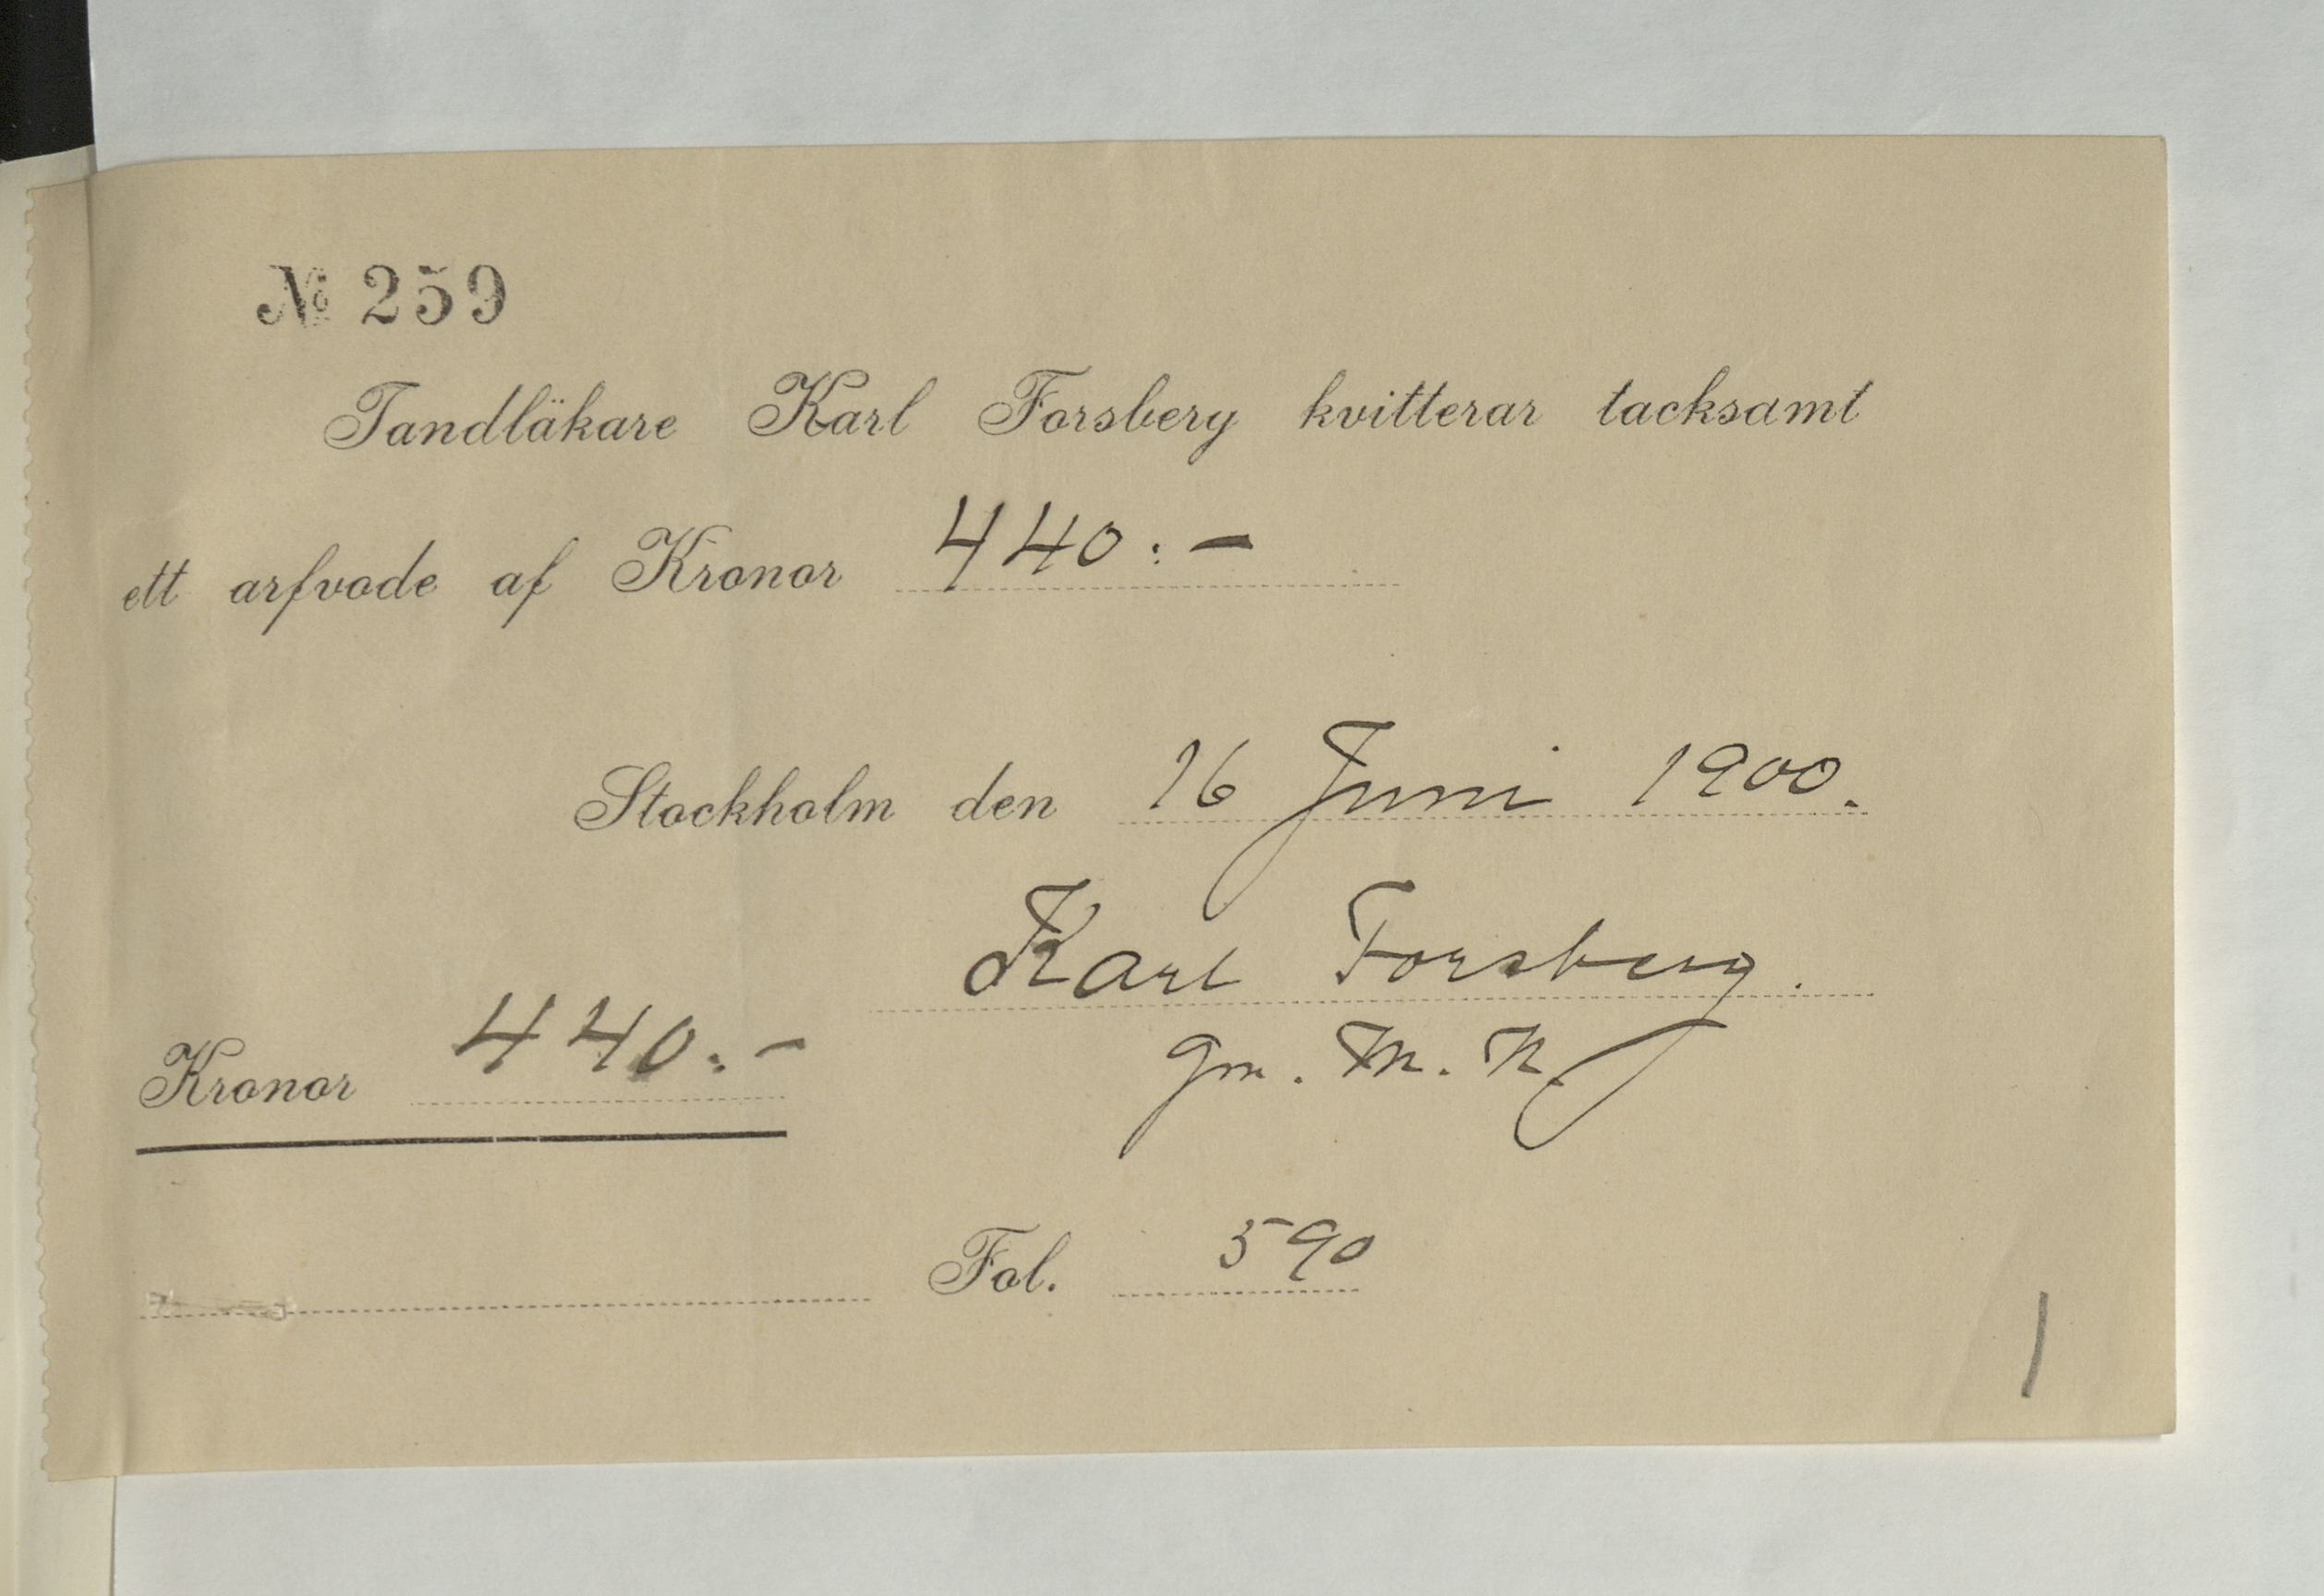 № 259
Tandläkare Karl Forsberg kvitterar tacksamt
ett arfvode af Kronor 440:-
Stockholm den 16 Juni 1900.
Karl Forsberg.
Kronor 440:-
gm. M. N.
Fol. 590
1